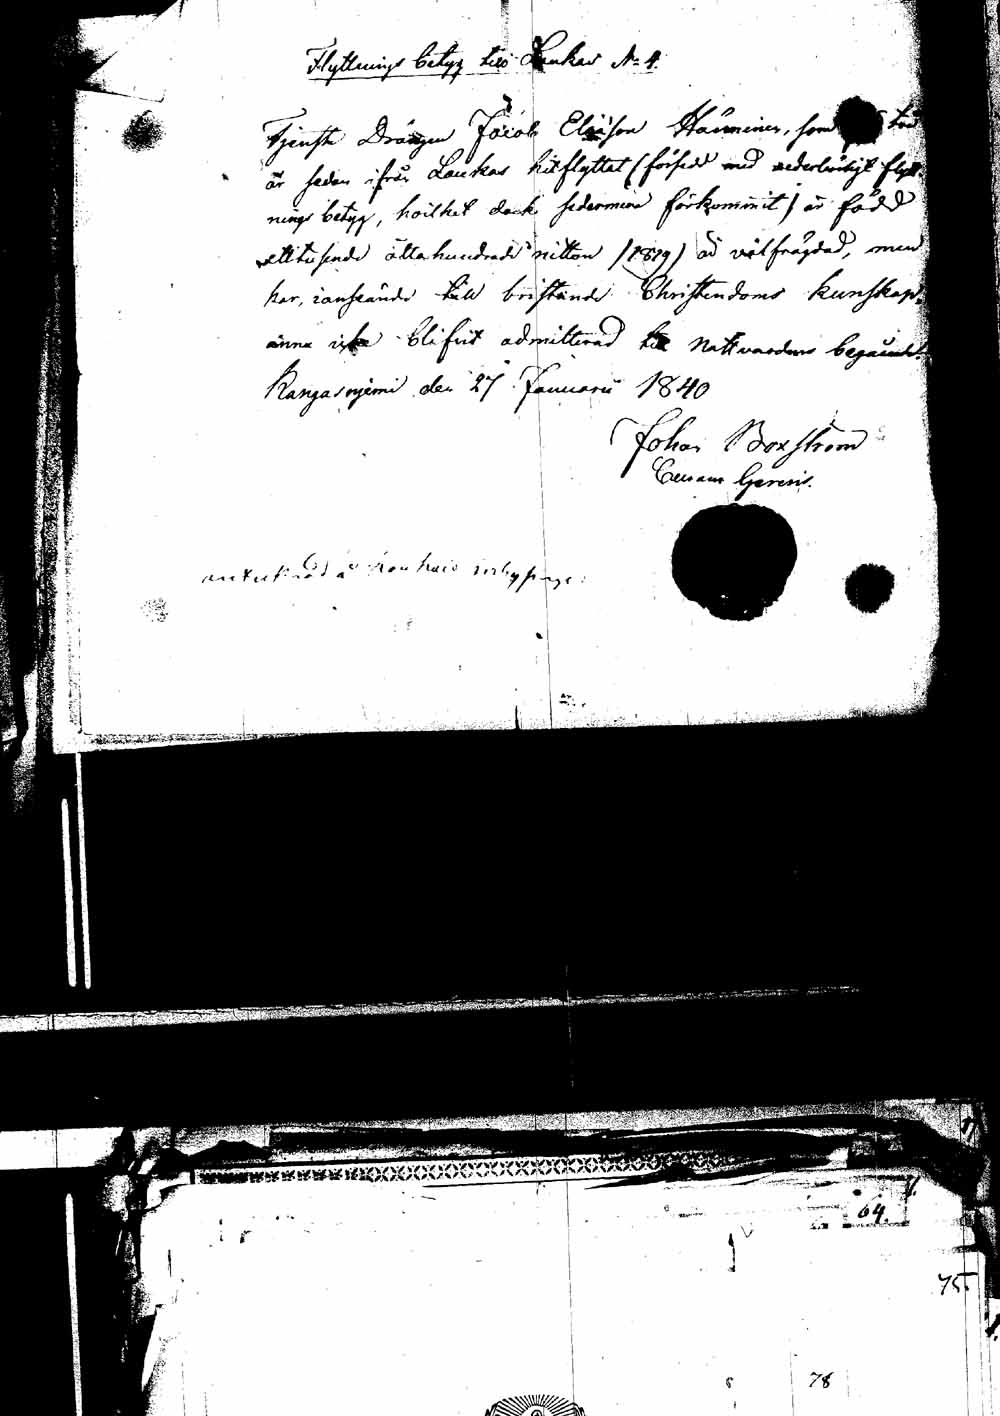 Flyttnings betyg till Laukas No 4.
Tjenste Drängen Jacob Eliäson Hänninen, som två
år sedan ifrån Laukas hitflyttat (försedd med vederbörligt flytt
nings betyg, hvilket dock sedermera förkommit) är född
ettusende åttahundrade nitton (1819) och välfrägdad, men
har, i anseende till bristande Christendoms kunskap,
ännu icke blifvit admitterad till Nattvardens begående.
Kangasniemi den 27 Januarii 1840
Johan Boxström
64.
75.
78